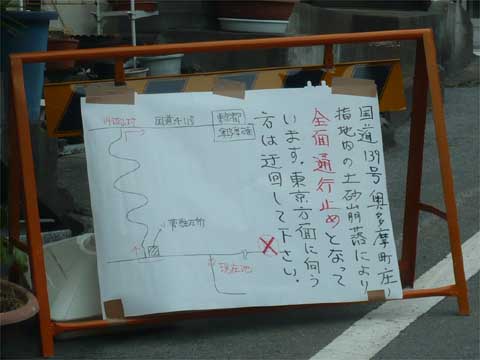 国道139号奥多摩町庄ノ
指地内の土砂山崩落により
全面通行止めとなって
います。東京方面に向う
方は迂回して下さい。
国道411号
東京都
現在地